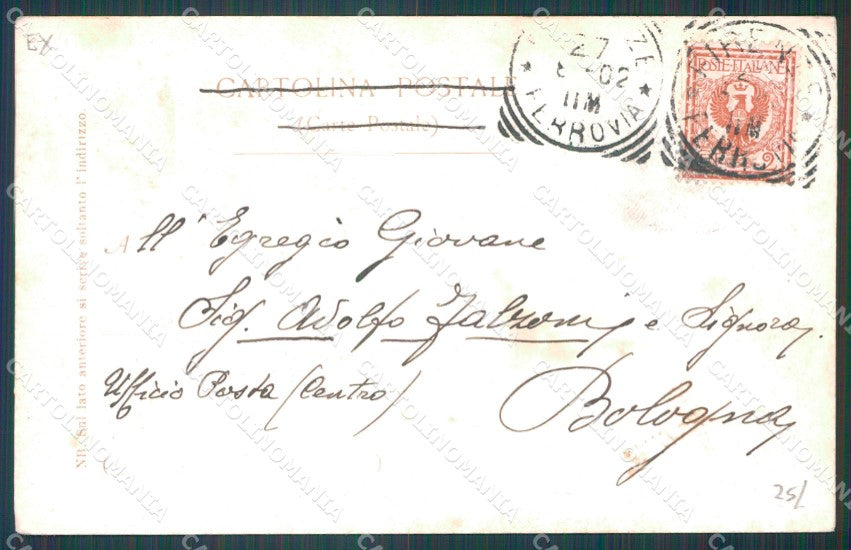 EX
CARTOLINA POSTALE
(Carte Postale)
27
02
11M
FERROVIA
POSTE ITALIANE
All' Egregio Giovane
Sig. Adolfo Falzoni e Signora.
Ufficio Posta (Centro)
Bologna
NB. Sul lato anteriore si scrive soltanto l'indirizzo.
25/
CARTOLINOMANIA